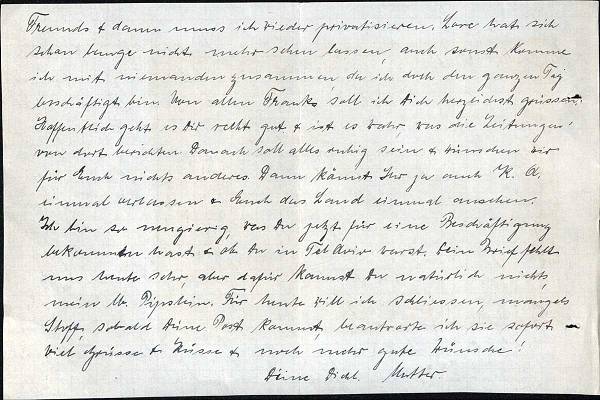 Freunds + dann muss ich wieder privatisieren. Lore hat sich
schon lange nicht mehr sehen lassen, auch sonst komme
ich mit niemanden zusammen, da ich doch den ganzen Tag
beschäftigt bin. Von allen Franks soll ich Dich herzlichst grüssen.
Hoffentlich geht es Dir recht gut + ist es wahr, was die Zeitungen
von dort berichten. Danach soll alles ruhig sein + wünschen wir
für Euch nichts anderes. Dann könnt Ihr ja auch K. A.
einmal verlassen + Euch das Land einmal ansehen.
Ich bin so neugierig, was Du jetzt für eine Beschäftigung
bekommen hast + ob Du in Tel Aviv warst. Dein Brief fehlt
uns heute sehr, aber dafür kannst Du natürlich nichts,
mein lb. Für heute will ich schliessen, mangels
Stoff, sobald Deine Post kommt, beantworte ich sie sofort
Viel Grüsse + Küsse + noch mehr gute Wünsche!
Deine Dichl. Mutter